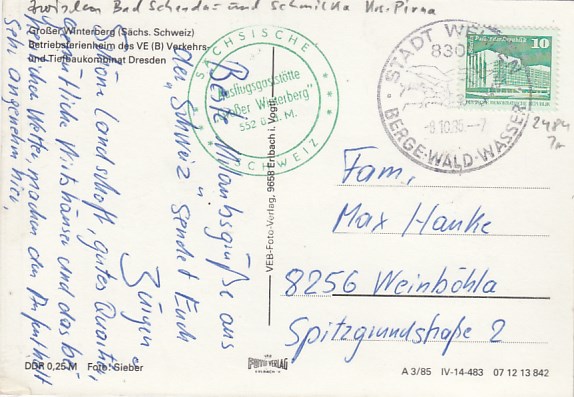 zwischen Bad Schandau und Schmilka Krs. Pirna
Großer Winterberg (Sächs. Schweiz)
Betriebsferienheim des VE (B) Verkehrs-
und Tiefbaukombinat Dresden
SÄCHSISCHE
Ausflugsgaststätte
"Großer Winterberg"
552 ü. M.
SCHWEIZ
STADT
830
-7
BERGE-WALD-WASSER
10
DDR
2484
Beste Urlaubsgrüße aus
der „Schweiz" sendet Euch
Jürgen
Schöne Landschaft, gutes Quartier,
gemütliche Wirtshäuser und das
Wetter machen den Aufenthalt
sehr angenehm hier.
Fam.
Max Hanke
8256 Weinböhla
Spitzgrundstraße 2
VEB-Foto-Verlag, 9658 Erlbach i. Vogtl.
DDR 0,25 M Foto: Sieber
VEB
FOTO VERLAG
ERLBACH
A 3/85 IV-14-483 07 12 13 842